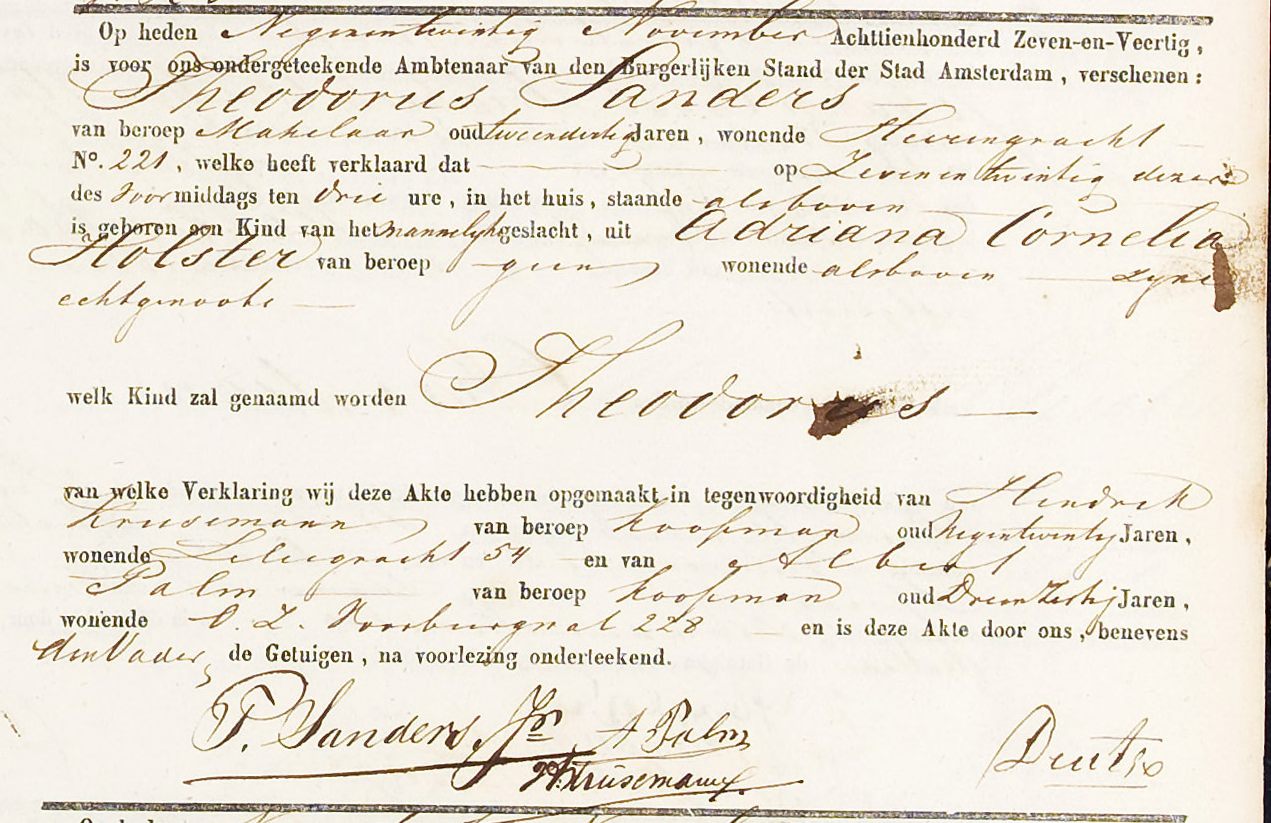 Op heden Negenentwintig November Achttienhonderd Zeven-en-Veertig,
is voor ons ondergeteekende Ambtenaar van den Burgerlijken Stand der Stad Amsterdam, verschenen:
Theodorus Sanders
van beroep Makelaar oud tweendertig Jaren, wonende Heerengracht
No. 221, welke heeft verklaard dat op Zevenentwintig dezer
des voormiddags ten drie ure, in het huis, staande alsboven
is geboren een Kind van het mannelyk geslacht, uit Adriana Cornelia
Holster van beroep geen wonende alsboven zyne
echtgenoote
welk Kind zal genaamd worden Theodorus
van welke Verklaring wij deze Akte hebben opgemaakt in tegenwoordigheid van Hendrik
Krusemann van beroep Koopman oud Negentwintig Jaren,
wonende Leliegracht 54 en van Albert
Palm van beroep Koopman oud Drieenzestig Jaren,
wonende O. Z. Voorburgwal 228 en is deze Akte door ons, benevens
den Vader, de Getuigen, na voorlezing onderteekend.
T. Sanders Jr. A Palm
H. Krusemann